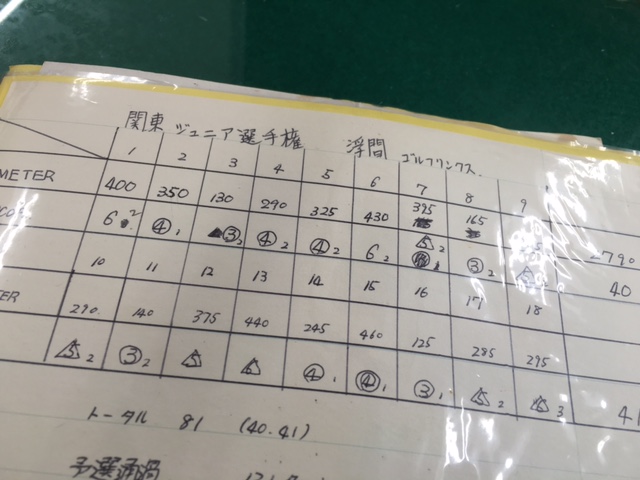 関東 ジュニア選手権 浮間 ゴルフリンクス.
1 2 3 4 5 6 7 8 9
METER 400 350 130 290 325 430 395 165
6 2 ④ 1 ③ 2 ④ 2 ④ 2 6 2 5 2 ③ 2 40
10 11 12 13 14 15 16 17 18
TER 290 140 375 440 245 460 125 285 295
5 2 ③ 2 5 6 ④ 1 ④ 1 ③ 1 5 2 5 3 41
トータル 81 (40.41)
予選通過